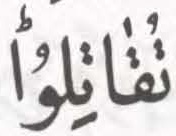 تُقَاتِلُواؕ